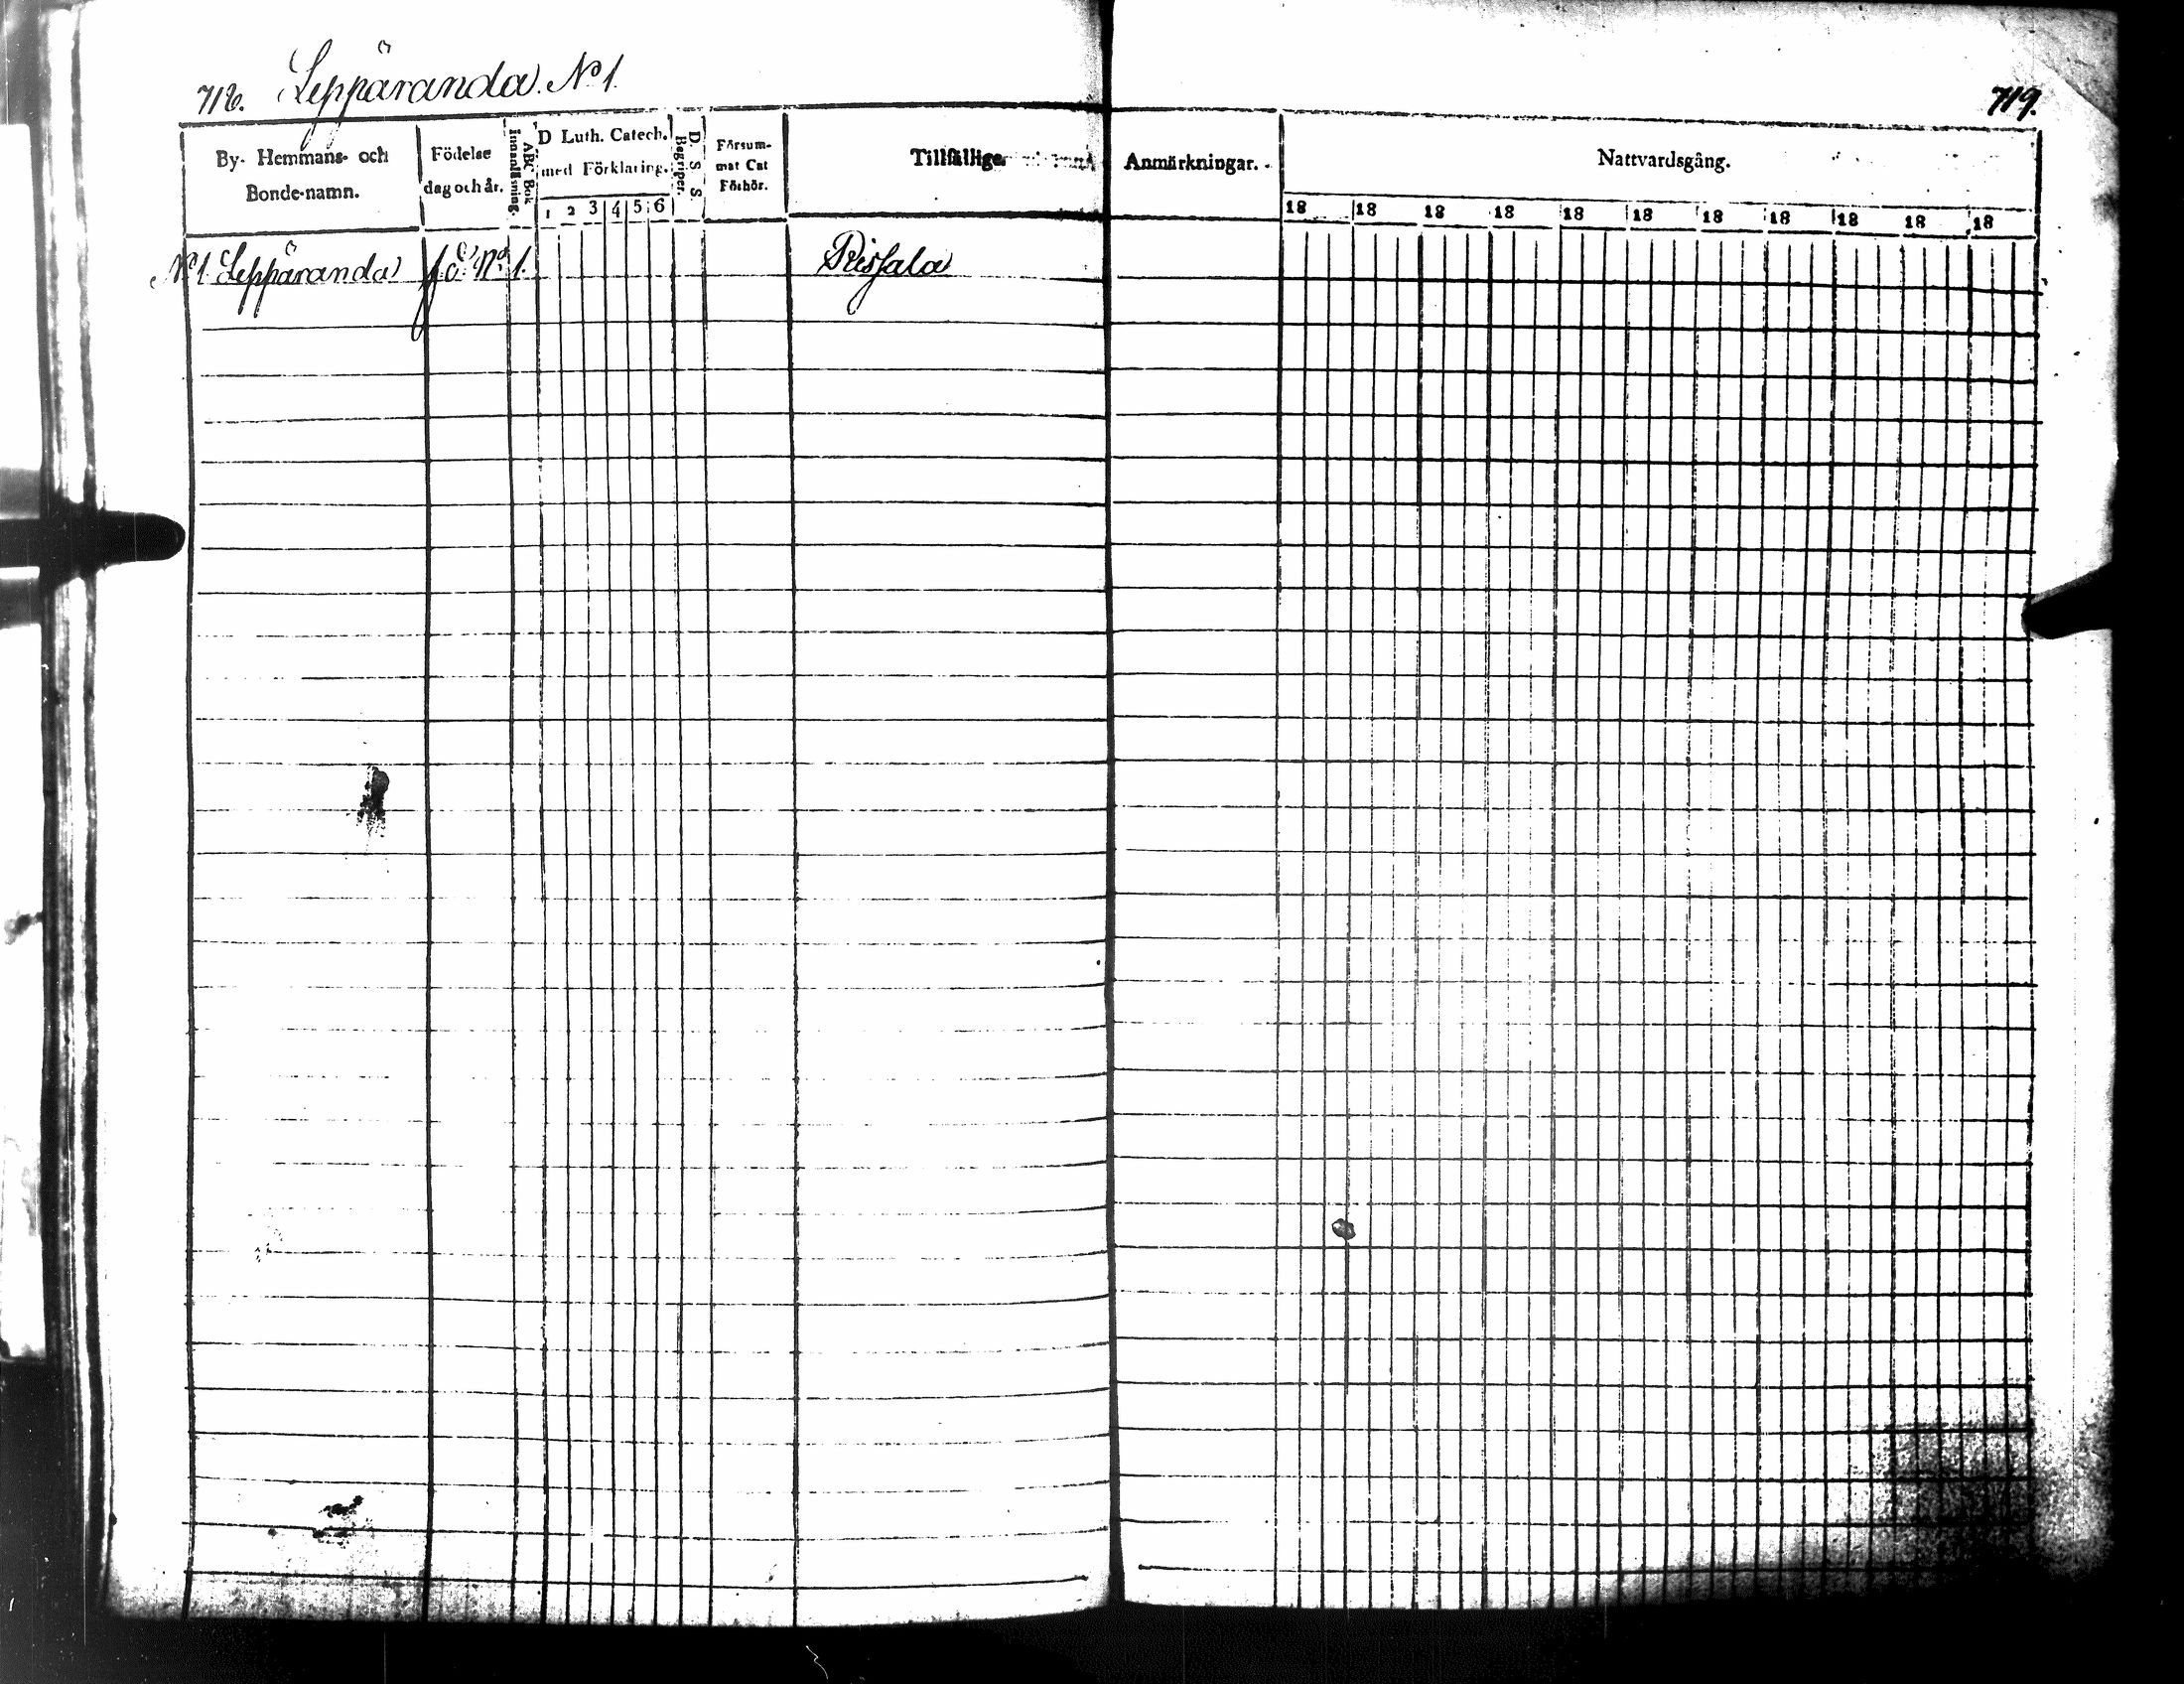 718. Leppäranda. No 1.
719.
By- Hemmans- och
Bonde-namn.
Födelse
dag och år.
ABC Bok
Innanläsning.
D Luth. Catech.
med Förklaring.
1 2 3 4 5 6
D. S. S.
Begriper.
Försum-
mat Cat
Förhör.
Tillfällige
Anmärkningar.
Nattvardsgång.
18 18 18 18 18 18 18 18 18 18 18
No 1 Leppäranda No 1.